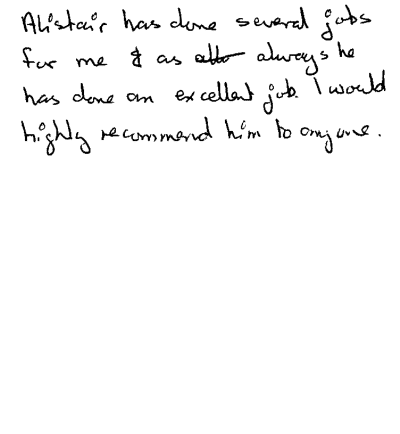 Alistair has done several jobs
for me & as always he
has done an excellent job. I would
highly recommend him to anyone.